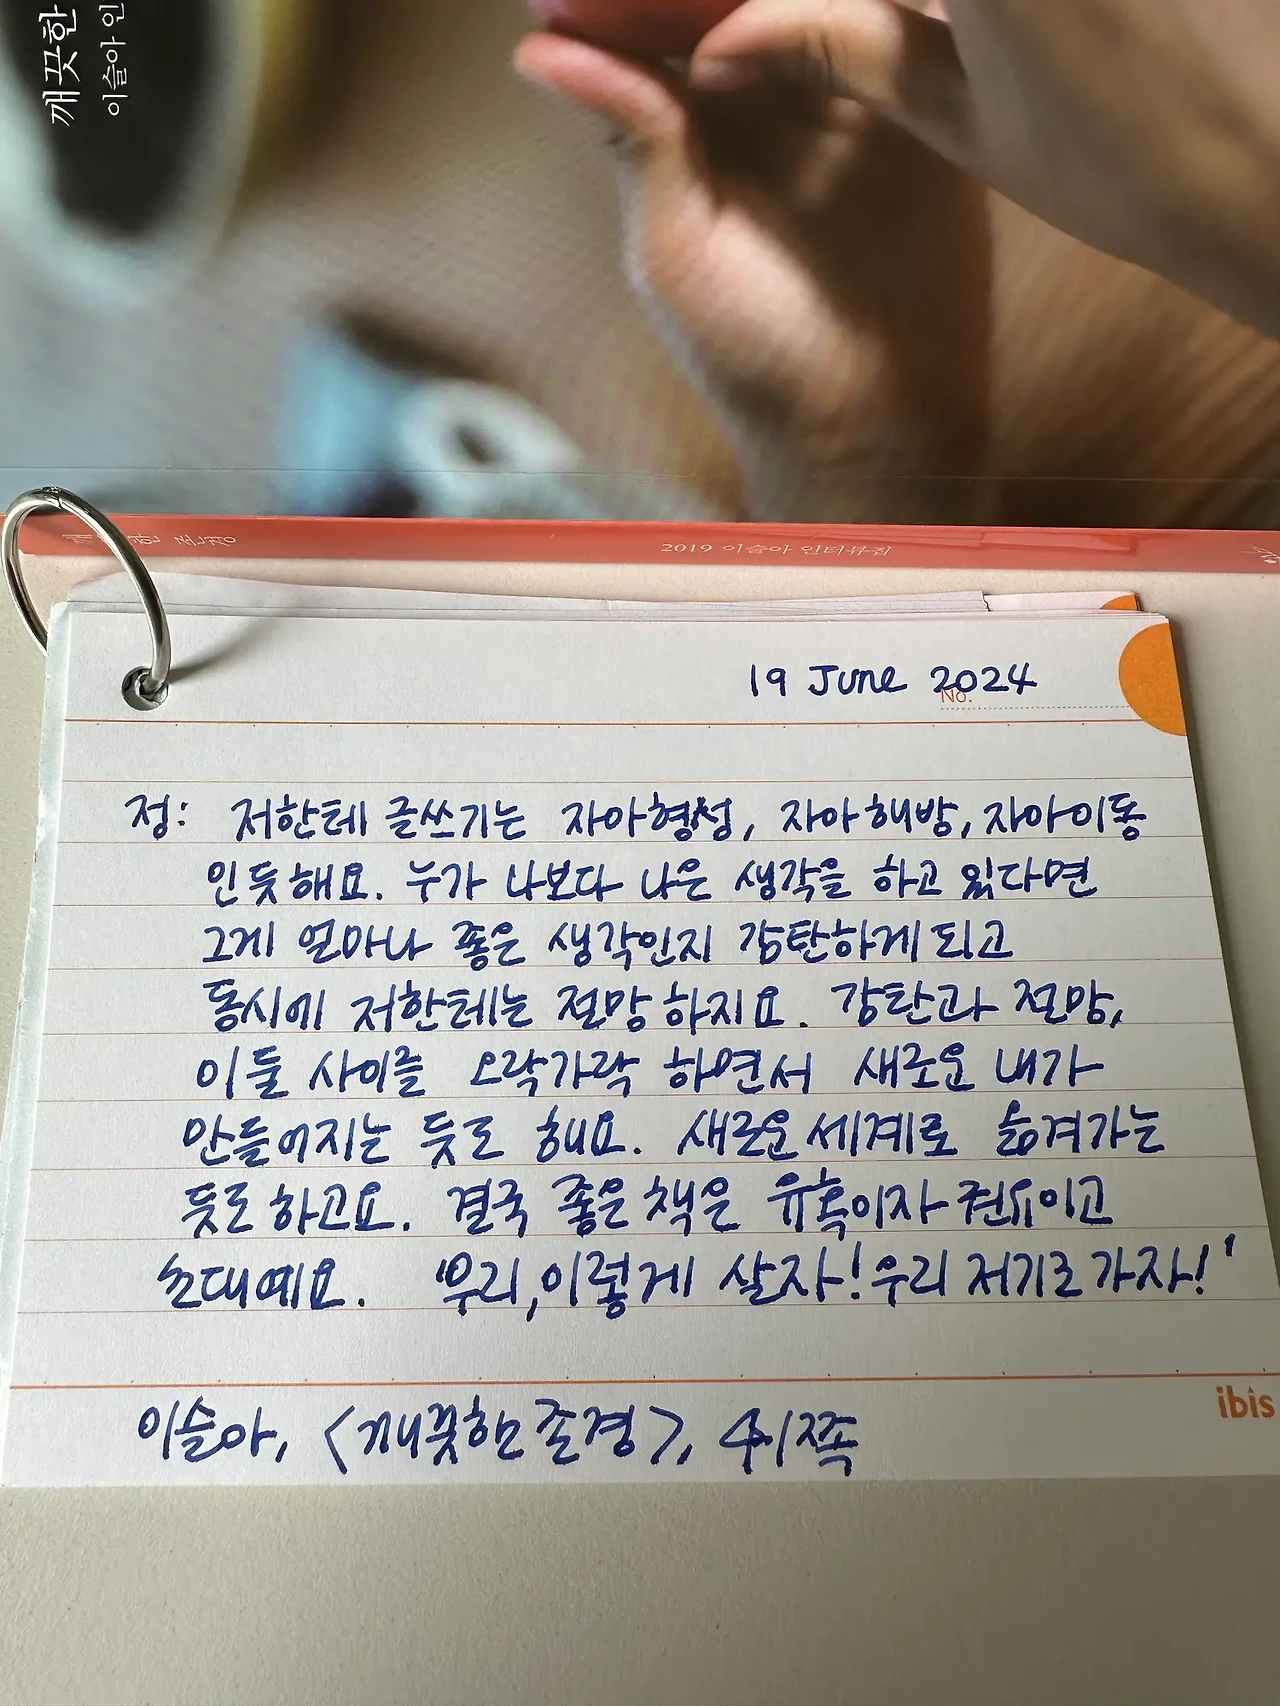 깨끗한
이슬아 인
2019 이슬아 인터뷰집
19 June 2024
No.
정: 저한테 글쓰기는 자아형성, 자아해방, 자아이동
인듯해요. 누가 나보다 나은 생각을 하고 있다면
그게 얼마나 좋은 생각인지 감탄하게 되고
동시에 저한테는 절망하지요. 감탄과 절망,
이 둘 사이를 오락가락 하면서 새로운 내가
만들어지는 듯도 해요. 새로운 세계로 옮겨가는
듯도 하고요. 결국 좋은 책은 유혹이자 권유이고
초대예요. '우리, 이렇게 살자! 우리 저기로 가자!'
ibis
이슬아, <깨끗한 존경>, 41쪽